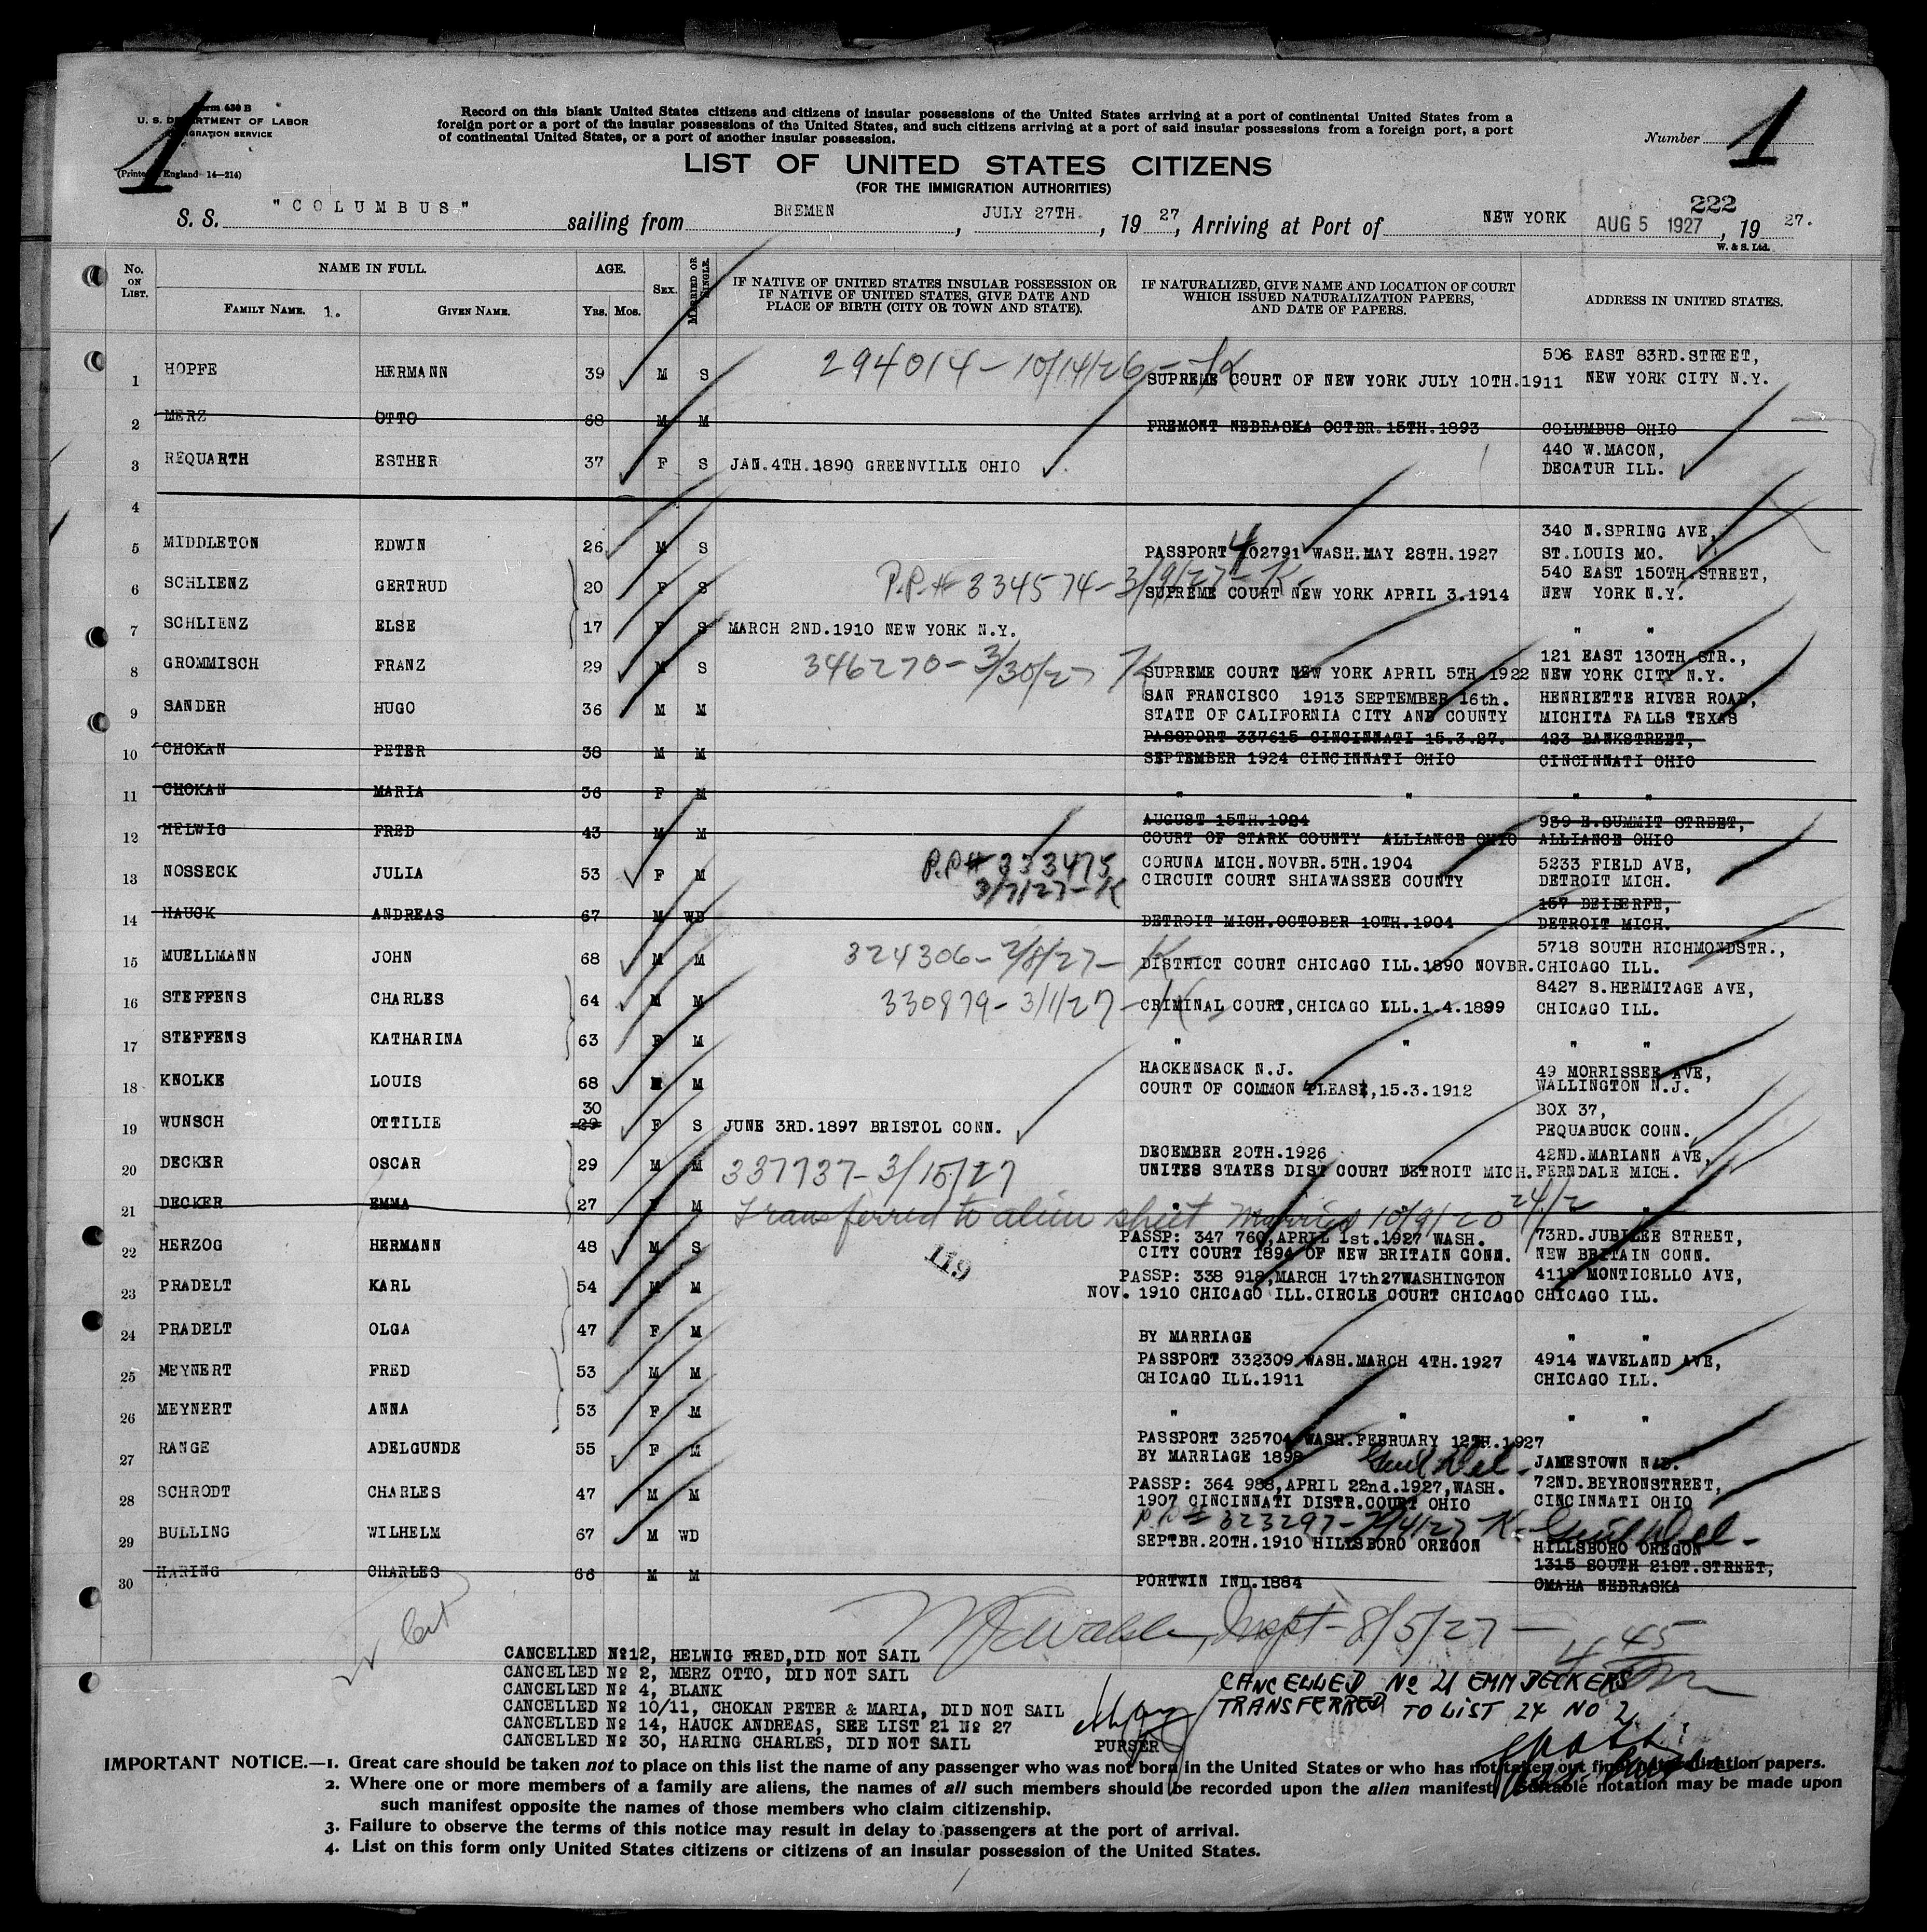 1
Form 630 B
U. S. DEPARTMENT OF LABOR
IMMIGRATION SERVICE
(Printed in England 14—214)
Record on this blank United States citizens and citizens of insular possessions of the United States arriving at a port of continental United States from a
foreign port or a port of the insular possessions of the United States, and such citizens arriving at a port of said insular possessions from a foreign port, a port
of continental United States, or a port of another insular possession.
Number 1
LIST OF UNITED STATES CITIZENS
(FOR THE IMMIGRATION AUTHORITIES)
222
S. S. "COLUMBUS" sailing from BREMEN, JULY 27TH. , 19 27, Arriving at Port of NEW YORK AUG 5 1927 , 19 27.
W. & S. Ltd.
No. ON LIST. NAME IN FULL. AGE. SEX. MARRIED OR SINGLE. IF NATIVE OF UNITED STATES INSULAR POSSESSION OR IF NATIVE OF UNITED STATES, GIVE DATE AND PLACE OF BIRTH (CITY OR TOWN AND STATE). IF NATURALIZED, GIVE NAME AND LOCATION OF COURT WHICH ISSUED NATURALIZATION PAPERS, AND DATE OF PAPERS. ADDRESS IN UNITED STATES.
FAMILY NAME. 1. GIVEN NAME. Yrs. Mos.
506 EAST 83RD.STREET,
1 HOPFE HERMANN 39 M S 294014-10/14/26-K SUPREME COURT OF NEW YORK JULY 10TH.1911 NEW YORK CITY N.Y.
2 MERZ OTTO 68 M M FREMONT NEBRASKA OCTBR.15TH.1893 COLUMBUS OHIO
440 W.MACON,
3 REQUARTH ESTHER 37 F S JAN.4TH.1890 GREENVILLE OHIO DECATUR ILL.
4
340 N.SPRING AVE,
5 MIDDLETON EDWIN 26 M S PASSPORT 402791 WASH.MAY 28TH.1927 ST.LOUIS MO.
540 EAST 150TH.STREET,
6 SCHLIENZ GERTRUD 20 F S P.P.# 334574-3/9/27-K. SUPREME COURT NEW YORK APRIL 3.1914 NEW YORK N.Y.
7 SCHLIENZ ELSE 17 F S MARCH 2ND.1910 NEW YORK N.Y. " "
121 EAST 130TH.STR.,
8 GROMMISCH FRANZ 29 M S 346270-3/30/27 K SUPREME COURT NEW YORK APRIL 5TH.1922 NEW YORK CITY N.Y.
SAN FRANCISCO 1913 SEPTEMBER 16th. HENRIETTE RIVER ROAD,
9 SANDER HUGO 36 M M STATE OF CALIFORNIA CITY AND COUNTY MICHITA FALLS TEXAS
PASSPORT 337615 CINCINNATI 15.3.27. 423 BANKSTREET,
10 CHOKAN PETER 38 M M SEPTEMBER 1924 CINCINNATI OHIO CINCINNATI OHIO
11 CHOKAN MARIA 36 F M " " " "
AUGUST 15TH.1924 939 E.SUMMIT STREET,
12 HELWIG FRED 43 M M COURT OF STARK COUNTY ALLIANCE OHIO ALLIANCE OHIO
P.P# 333475 CORUNA MICH.NOVBR.5TH.1904 5233 FIELD AVE,
13 NOSSECK JULIA 53 F M 3/7/27-K CIRCUIT COURT SHIAWASSEE COUNTY DETROIT MICH.
157 BEIERFE,
14 HAUCK ANDREAS 67 M WD DETROIT MICH.OCTOBER 10TH.1904 DETROIT MICH.
5718 SOUTH RICHMONDSTR.,
15 MUELLMANN JOHN 68 M M 324306-2/8/27-K DISTRICT COURT CHICAGO ILL.1890 NOVBR. CHICAGO ILL.
8427 S.HERMITAGE AVE,
16 STEFFENS CHARLES 64 M M 330879-3/1/27-K CRIMINAL COURT,CHICAGO ILL.1.4.1899 CHICAGO ILL.
17 STEFFENS KATHARINA 63 F M " " " "
HACKENSACK N.J. 49 MORRISSEE AVE,
18 KNOLKE LOUIS 68 M M COURT OF COMMON PLEASE,15.3.1912 WALLINGTON N.J.
30 BOX 37,
19 WUNSCH OTTILIE 29 F S JUNE 3RD.1897 BRISTOL CONN. PEQUABUCK CONN.
DECEMBER 20TH.1926 42ND.MARIANN AVE,
20 DECKER OSCAR 29 M M 337737-3/15/27 UNITES STATES DIST COURT DETROIT MICH. FERNDALE MICH.
21 DECKER EMMA 27 F M Transferred to alien sheet Married 10/9/20 24/2 " "
PASSP: 347 760,APRIL 1st.1927 WASH. 73RD.JUBILEE STREET,
22 HERZOG HERMANN 48 M S 119 CITY COURT 1894 OF NEW BRITAIN CONN. NEW BRITAIN CONN.
PASSP: 338 918,MARCH 17th27WASHINGTON 4118 MONTICELLO AVE,
23 PRADELT KARL 54 M M NOV. 1910 CHICAGO ILL.CIRCLE COURT CHICAGO CHICAGO ILL.
24 PRADELT OLGA 47 F M BY MARRIAGE " "
PASSPORT 332309 WASH.MARCH 4TH.1927 4914 WAVELAND AVE,
25 MEYNERT FRED 53 M M CHICAGO ILL.1911 CHICAGO ILL.
26 MEYNERT ANNA 53 F M " " " "
PASSPORT 325704 WASH.FEBRUARY 12TH.1927
27 RANGE ADELGUNDE 55 F M BY MARRIAGE 1898 JAMESTOWN N.D.
PASSP: 364 988,APRIL 22nd.1927,WASH. 72ND.BEYRONSTREET,
28 SCHRODT CHARLES 47 M M 1907 CINCINNATI DISTR.COURT OHIO CINCINNATI OHIO
P.P.# 323297-2/4/27 K.
29 BULLING WILHELM 67 M WD SEPTBR.20TH.1910 HILLSBORO OREGON HILLSBORO OREGON
1315 SOUTH 21ST.STREET,
30 HARING CHARLES 66 M M PORTWIN IND.1884 OMAHA NEBRASKA
Inspt-8/5/27-
45
CANCELLED No12, HELWIG FRED,DID NOT SAIL
CANCELLED No 2, MERZ OTTO, DID NOT SAIL
CANCELLED No 4, BLANK
CANCELLED No 10/11, CHOKAN PETER & MARIA, DID NOT SAIL
CANCELLED No 14, HAUCK ANDREAS, SEE LIST 21 No 27
CANCELLED No 30, HARING CHARLES, DID NOT SAIL
PURSER
CANCELLED No 21 EMM DECKERS
TRANSFERRED TO LIST 24 NO 2
IMPORTANT NOTICE.—1. Great care should be taken not to place on this list the name of any passenger who was not born in the United States or who has not taken out final naturalization papers.
2. Where one or more members of a family are aliens, the names of all such members should be recorded upon the alien manifest. Suitable notation may be made upon
such manifest opposite the names of those members who claim citizenship.
3. Failure to observe the terms of this notice may result in delay to passengers at the port of arrival.
4. List on this form only United States citizens or citizens of an insular possession of the United States.